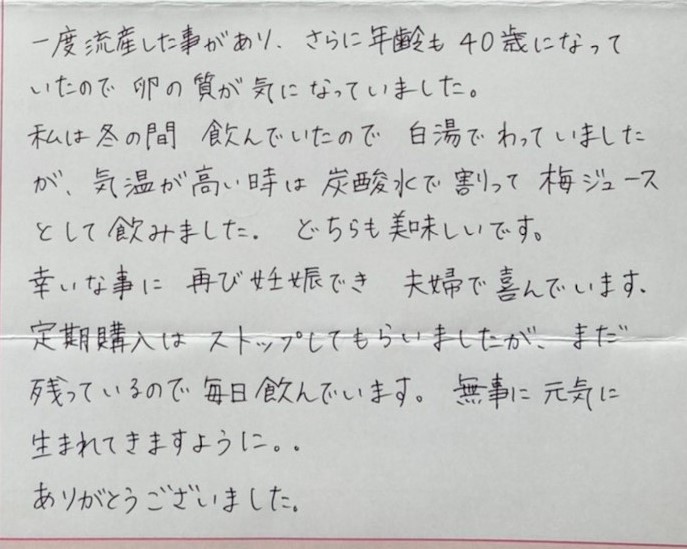 一度流産した事があり、さらに年齢も40歳になって
いたので卵の質が気になっていました。
私は冬の間 飲んでいたので 白湯でわっていました
が、気温が高い時は炭酸水で割って梅ジュース
として飲みました. どちらも美味しいです。
幸いな事に 再び妊娠でき 夫婦で喜んでいます.
定期購入はストップしてもらいましたが、まだ
残っているので毎日飲んでいます。無事に元気に
生まれてきますように。.
ありがとうございました。